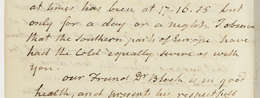 at times has been at 17. 16. 15 but
only for a day or a night. I observe
that the Southern parts of Europe have
had the cold equally severe as with
you.
our friend Dr Bloch is in good
health, and present by respectful